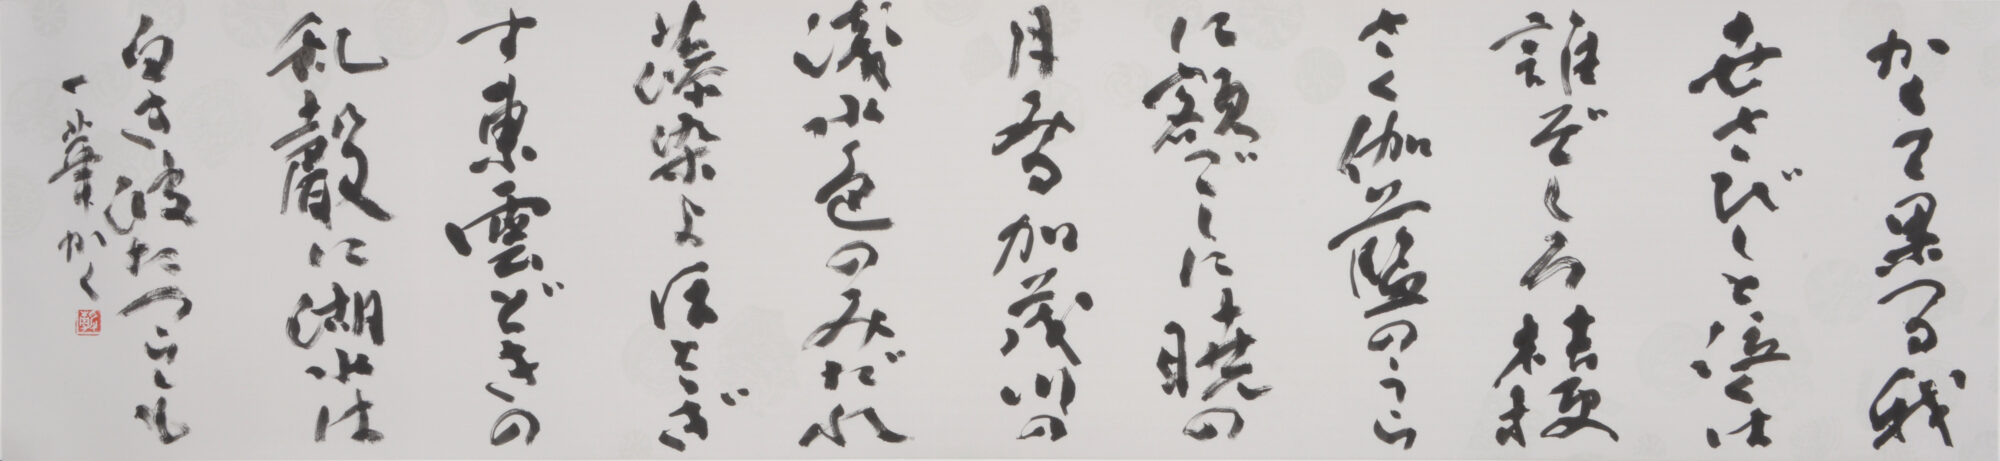 かくて果つる我
世さびしと泣くは
誰ぞしろ桔梗
さく伽藍のうら
に額ごしに暁の
月みる加茂川の
淺水色のみだれ
藻染よほとゝぎ
す東雲どきの
乱聲に湖水は
白き波たつらしも
一華かく